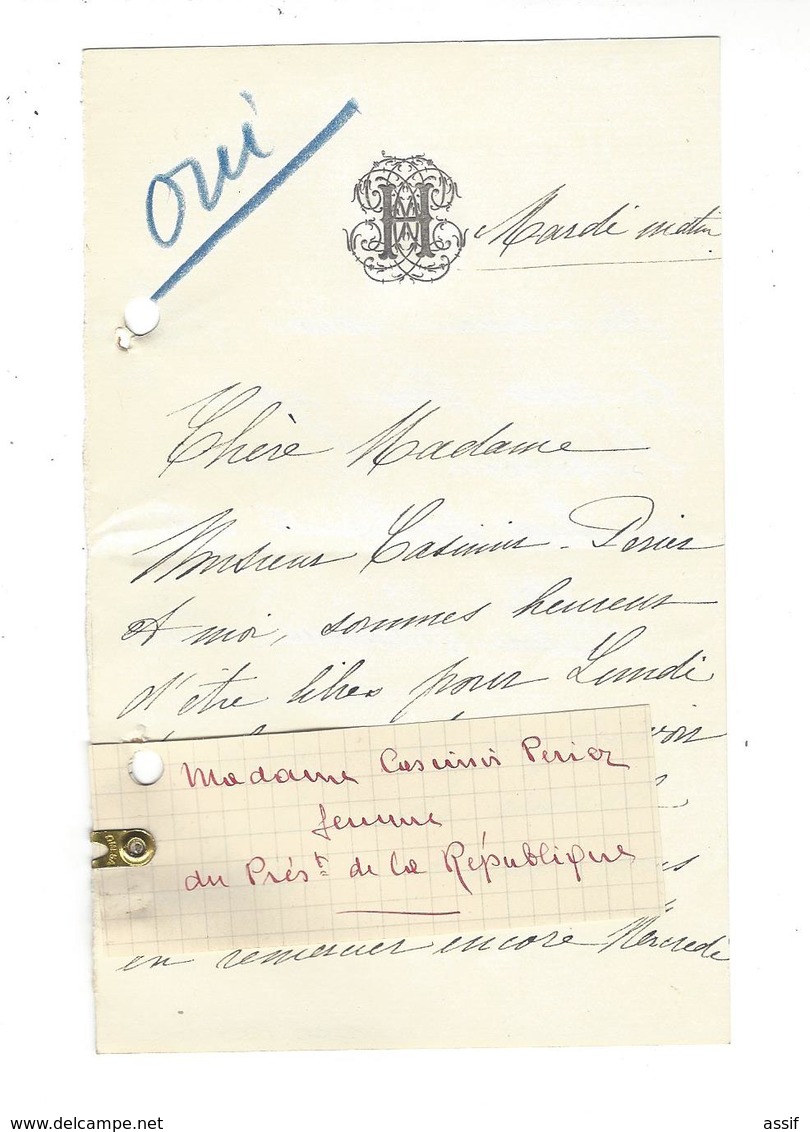 oui
Mardi matin
Chère Madame
Monsieur Casimir-Perier
et moi, sommes heureux
d'être libres pour Lundi
Madame Casimir Perier
femme
du Prést de la République
en remercier encore Mercredi
delcampe.net
assif